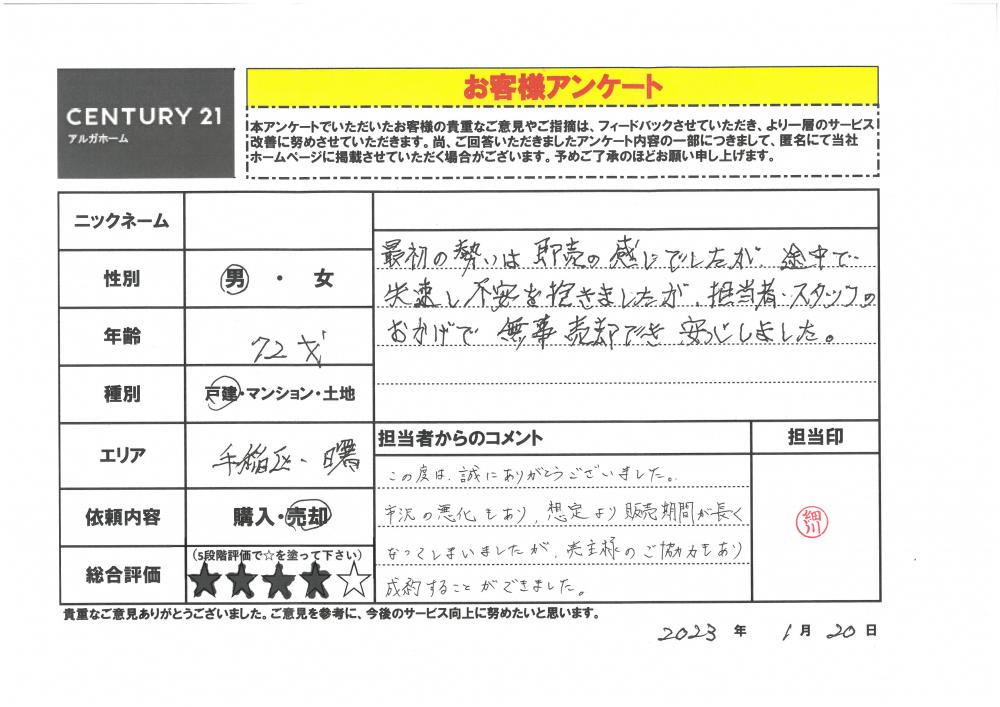 お客様アンケート
CENTURY 21
アルガホーム
本アンケートでいただいたお客様の貴重なご意見やご指摘は、フィードバックさせていただき、より一層のサービス
改善に努めさせていただきます。尚、ご回答いただきましたアンケート内容の一部につきまして、匿名にて当社
ホームページに掲載させていただく場合がございます。予めご了承のほどお願い申し上げます。
ニックネーム
性別 男・女
年齢 72才
種別 戸建・マンション・土地
エリア 手稲区・曙
依頼内容 購入・売却
総合評価 (5段階評価で☆を塗って下さい)
★★★★☆
最初の勢いは即売の感じでしたが、途中で
失速し不安を抱きましたが、担当者・スタッフの
おかげで無事売却でき安心しました。
担当者からのコメント 担当印
この度は、誠にありがとうございました。
市況の悪化もあり、想定より販売期間が長く
なってしまいましたが、売主様のご協力もあり
成約することができました。
細川
貴重なご意見ありがとうございました。ご意見を参考に、今後のサービス向上に努めたいと思います。
2023年 1月20日